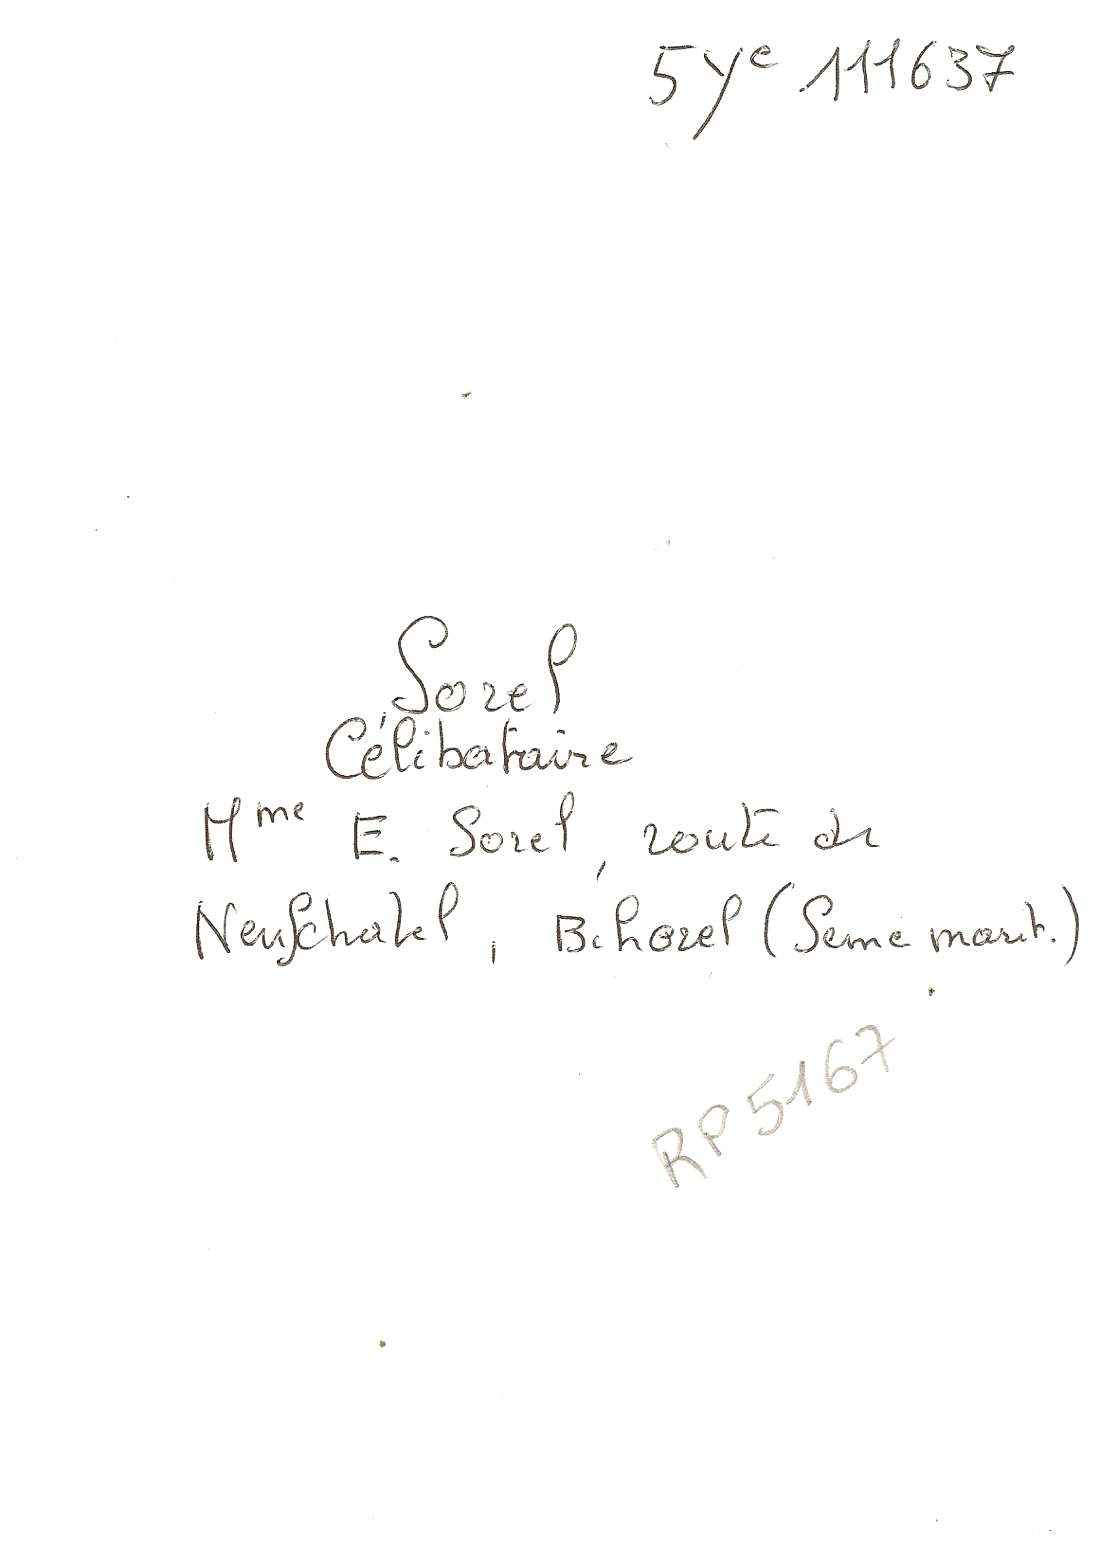 5 Ye 111637
Sorel
Célibataire
Mme E. Sorel, route de
Neufchatel, Bihorel (Seine marit.)
RP 5167